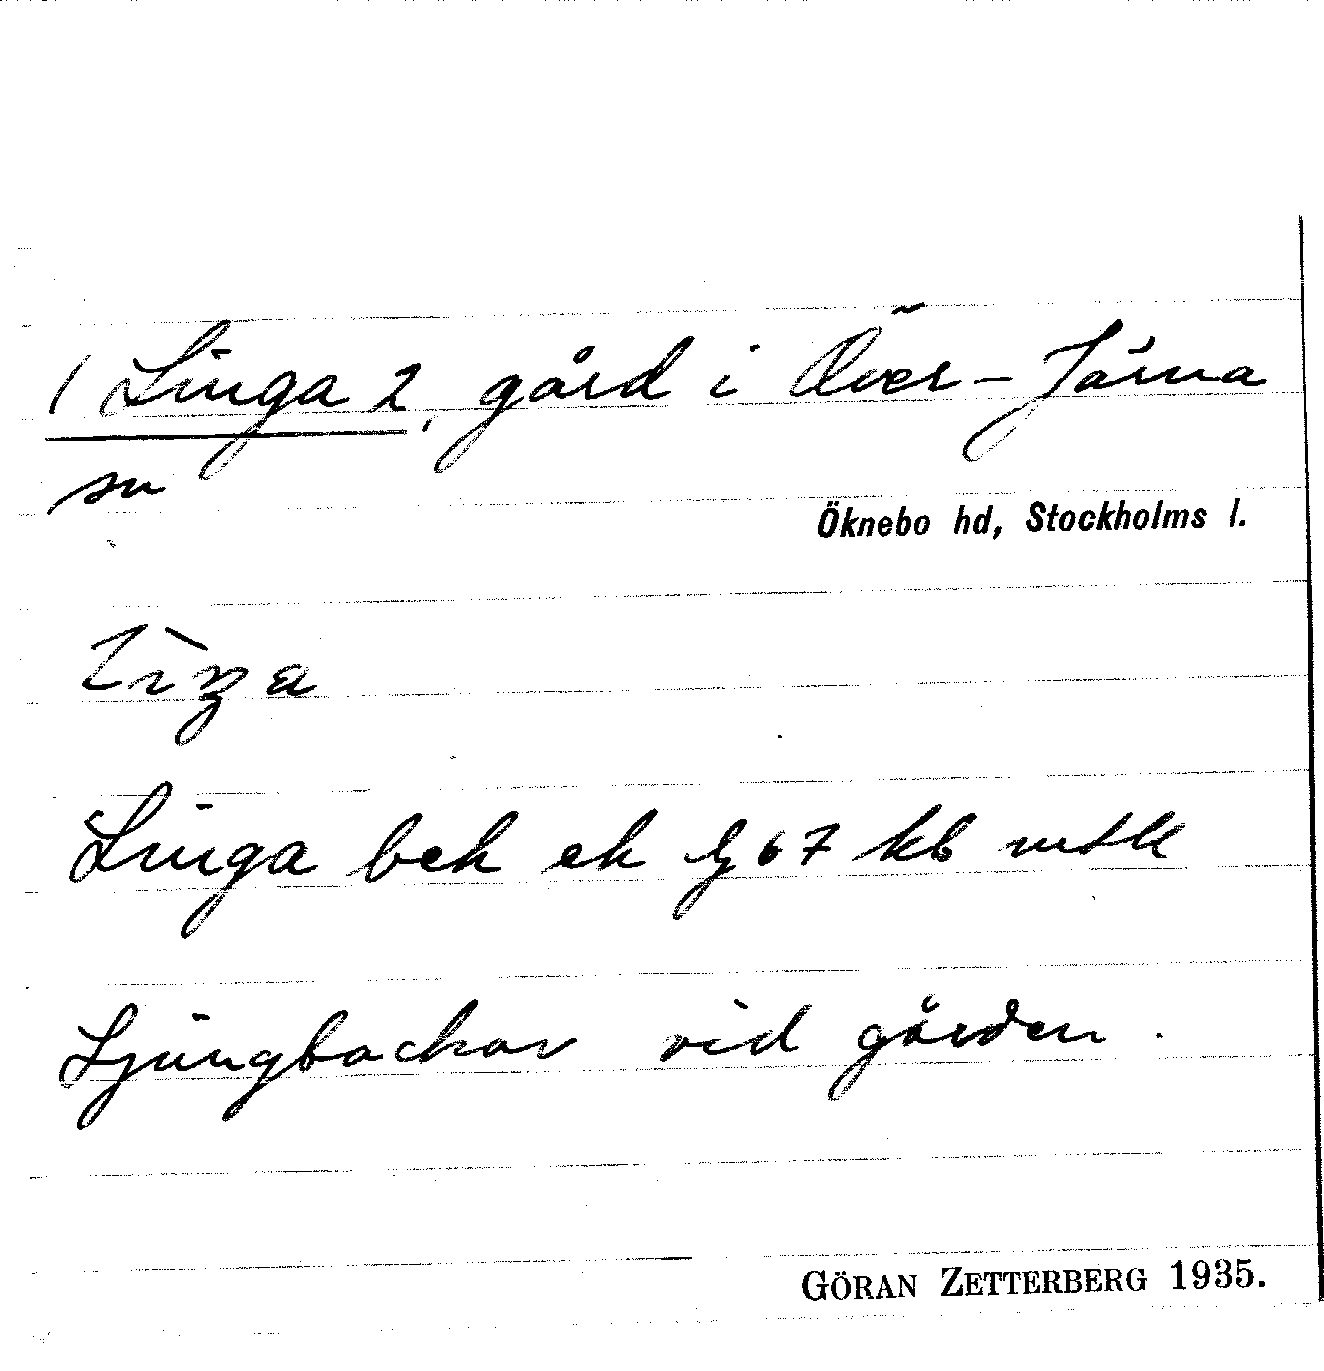 ( Linga 2, gård i Över-Järna
sn
Öknebo hd, Stockholms l.
Linga bek ek 67 kb mtl
Ljungbackar vid gården.
GÖRAN ZETTERBERG 1935.